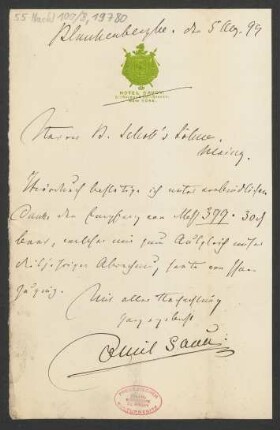 55 Nachl 100/B, 19780
Blankenberghe, den 5 Aug. 99
HOTEL SAVOY
NEW YORK
Herren B. Schott's Söhne
Mainz
Hierdurch bestätige ich unter verbindlichem
Danke den Empfang von Mk 399.30
baar, welche mir zum Ausgleich unserer
diesjährigen Abrechnung, heute von Ihnen
zuging.
Mit aller Hochachtung
ganz ergebenst
Emil Sauer